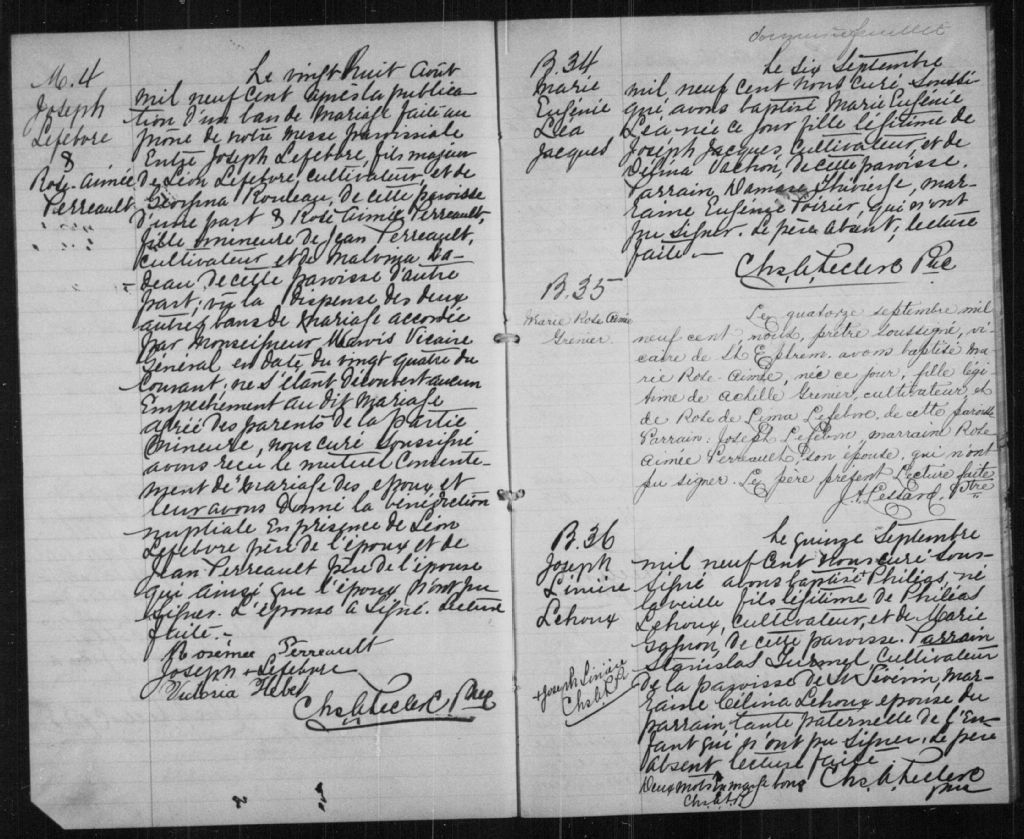 M. 4
Joseph
Lefebvre
&
Rose-Aimée
Perreault
Le vingt huit Août
mil neuf cent après la publica-
tion d'un ban de mariage faite au
prône de notre messe paroissiale
Entre Joseph Lefebvre, fils majeur
de Léon Lefebvre, cultivateur, et de
Georgina Rouleau, de cette paroisse
d'une part & Rose Aimée Perreault,
fille mineure de Jean Perreault,
cultivateur et de Malvina
de cette paroisse d'autre
part; vu la dispense des deux
autres bans de mariage accordée
par Monseigneur Marois Vicaire
Général en date du vingt quatre du
courant; ne s'étant découvert aucun
Empêchement au dit mariage
agréé des parents de la partie
mineure, nous curé soussigné
avons reçu le mutuel consente-
ment de mariage des époux et
leur avons donné la bénédiction
nuptiale En présence de Léon
Lefebvre père de l'époux et de
Jean Perreault père de l'épouse
qui ainsi que l'époux n'ont pu
signer. L'épouse a signé. Lecture
faite.-
Rosemée Perreault
Joseph + Lefebvre
Victoria
Chs. A. Leclerc Ptre
B. 34
Marie
Eugénie
Léa
Jacques
Le six Septembre
mil neuf cent nous curé soussi-
gné, avons baptisé Marie Eugénie
Léa née ce jour fille légitime de
Joseph Jacques, cultivateur, et de
Délina Vachon, de cette paroisse.
Parrain, Damase mar-
raine Eugénie Poirier, qui n'ont
pu signer. Le père absent; lecture
faite.-
Chs. A. Leclerc Ptre
B. 35
Marie Rose Aimée
Grenier.
Le quatorze septembre mil
neuf cent, nous, prêtre soussigné, vi-
caire de St Ephrem. avons baptisé Ma-
rie Rose-Aimée, née ce jour, fille légi-
time de Achille Grenier, cultivateur, et
de Rose de Lima Lefebvre, de cette paroisse
Parrain: Joseph Lefebvre, marraine Rose
Aimée Perreault, son épouse, qui n'ont
pu signer. Le père présent. Lecture faite
J. A. Lessard, Ptre
B. 36
Joseph
Linière
Lehoux
+Joseph Linière
Chs. A. L.
Le quinze Septembre
mil neuf cent nous curé sous-
signé avons baptisé Philéas, né
la veille fils légitime de Philéas
Lehoux, cultivateur, et de Marie
Gagnon, de cette paroisse. Parrain
Stanislas Turmel, cultivateur
de la paroisse de St Séverin, mar-
raine Célina Lehoux épouse du
parrain, tante paternelle de l'En-
fant qui n'ont pu signer. Le père
absent lecture faite
Deux mots en marge bons
Chs. A. L.
Chs. A. Leclerc
Ptre